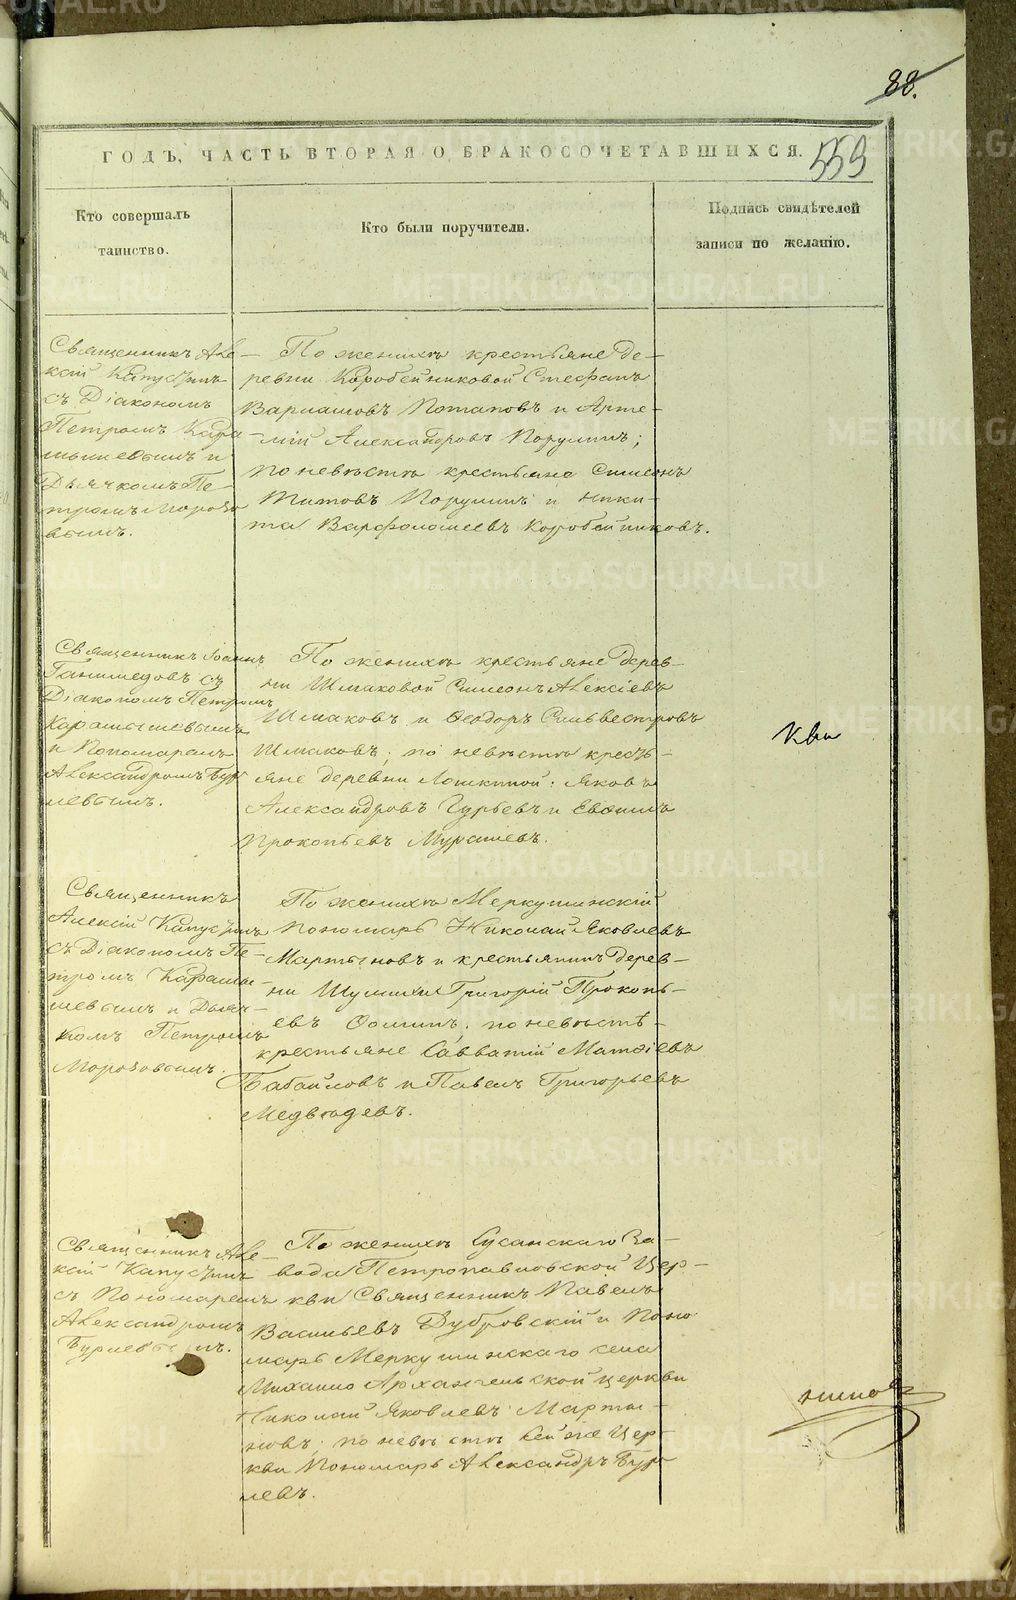 88.
ГОДЪ, ЧАСТЬ ВТОРАЯ О БРАКОСОЧЕТАВШИХСЯ.
559
Кто совершалъ
таинство.
Кто были поручители.
Подпись свидѣтелей
записи по желанію.
Священникъ Але-
ксій Капустинъ
съ Діакономъ
Петромъ Кара-
мышевымъ и
Дьячкомъ Пе-
тромъ Морозо
вымъ.
По женихѣ крестьяне де-
ревни Коробейниковой Стефанъ
Варлаамовъ Потаповъ и Арте-
мій Александровъ Порушинъ;
по невѣстѣ крестьяне Симеонъ
Титовъ Порушинъ и Ники-
та Варфоломеевъ Коробейниковъ.
Священникъ Іоаннъ
Ганимедовъ съ
Діакономъ Петромъ
Карамышевымъ
и Пономаремъ
Александромъ Бур
левымъ.
По женихѣ крестьяне дерев-
ни Шмаковой Симеонъ Алексіевъ
Шмаковъ и Ѳеодоръ Сильвестровъ
Шмаковъ; по невѣстѣ кресть-
яне деревни Лошкиной: Яковъ
Александровъ Гурьевъ и Евѳимъ
Прокопьевъ Мурашевъ.
Кви
Священникъ
Алексій Капустинъ
съ Діакономъ Пе-
тромъ Карамы-
шевымъ и Дьяч-
комъ Петромъ
Морозовымъ.
По женихѣ Меркушинскій
пономарь Николай Яковлевъ
Мартыновъ и крестьянинъ дерев-
ни Шумихи Григорій Прокопь-
евъ Ѳоминъ; по невѣстѣ-
крестьяне Савватій Матѳіевъ
Бабайловъ и Павелъ Григорьевъ
Медвѣдевъ.
Священникъ Але-
ксій Капустинъ
съ Пономаремъ
Александромъ
Бурлевымъ.
По женихѣ Сусанскаго За-
вода Петропавловской Цер-
кви Священникъ Павелъ
Васильевъ Дубровскій и Поно
марь Меркушинскаго села
Михаило Архангельской церкви
Николай Яковлевъ Марты-
новъ; по невѣстѣ сей же Цер-
кви Пономарь Александръ Бур-
левъ.
METRIKI.GASO-URAL.RU